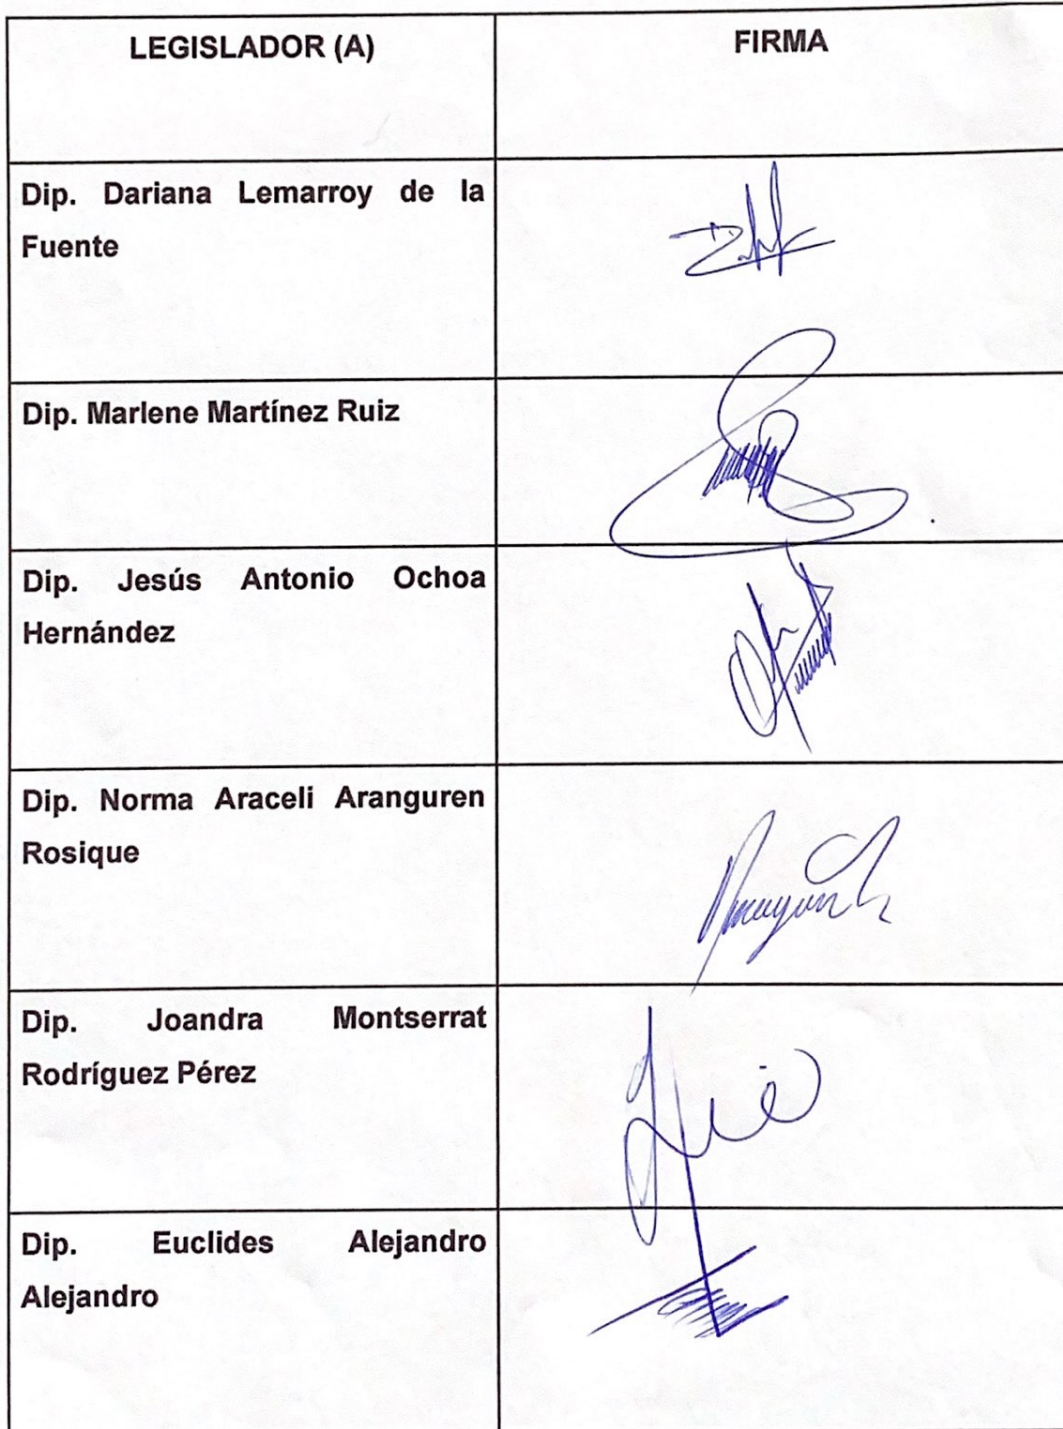 LEGISLADOR (A)
FIRMA
Dip. Dariana Lemarroy de la
Fuente
Dip. Marlene Martínez Ruiz
Dip. Jesús Antonio Ochoa
Hernández
Dip. Norma Araceli Aranguren
Rosique
Dip. Joandra Montserrat
Rodríguez Pérez
Dip. Euclides Alejandro
Alejandro